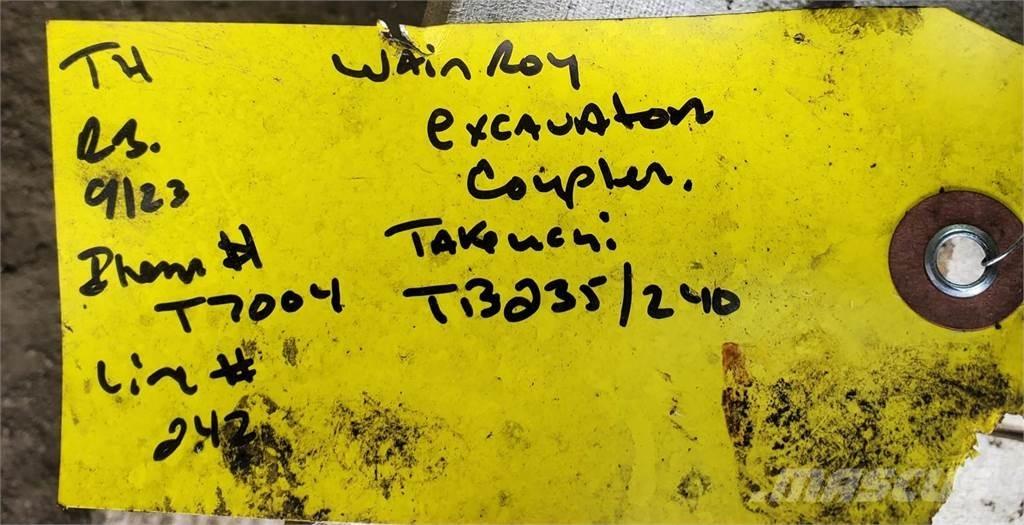 TH
RB.
9/23
Item #
T7004
Line #
242
WAin Roy
excavator
Coupler.
TAKeuchi
TB235/240
MASCUS